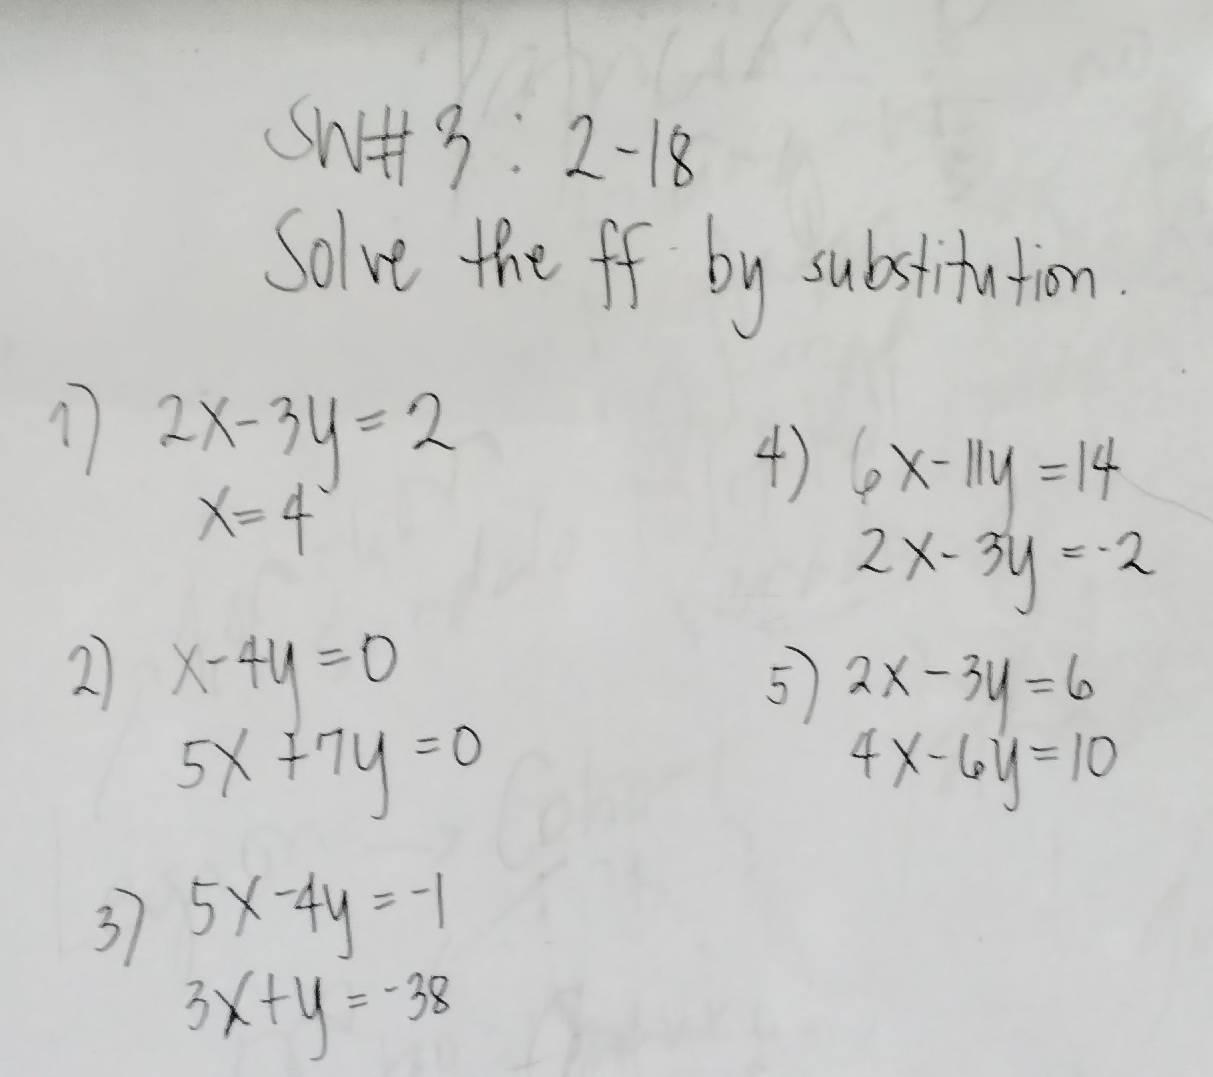 SW# 3 : 2-18
Solve the ff by substitution.
1) 2x-3y=2
x=4
2) x-4y=0
5x+7y=0
3) 5x-4y=-1
3x+y=-38
4) 6x-11y=14
2x-3y=-2
5) 2x-3y=6
4x-6y=10